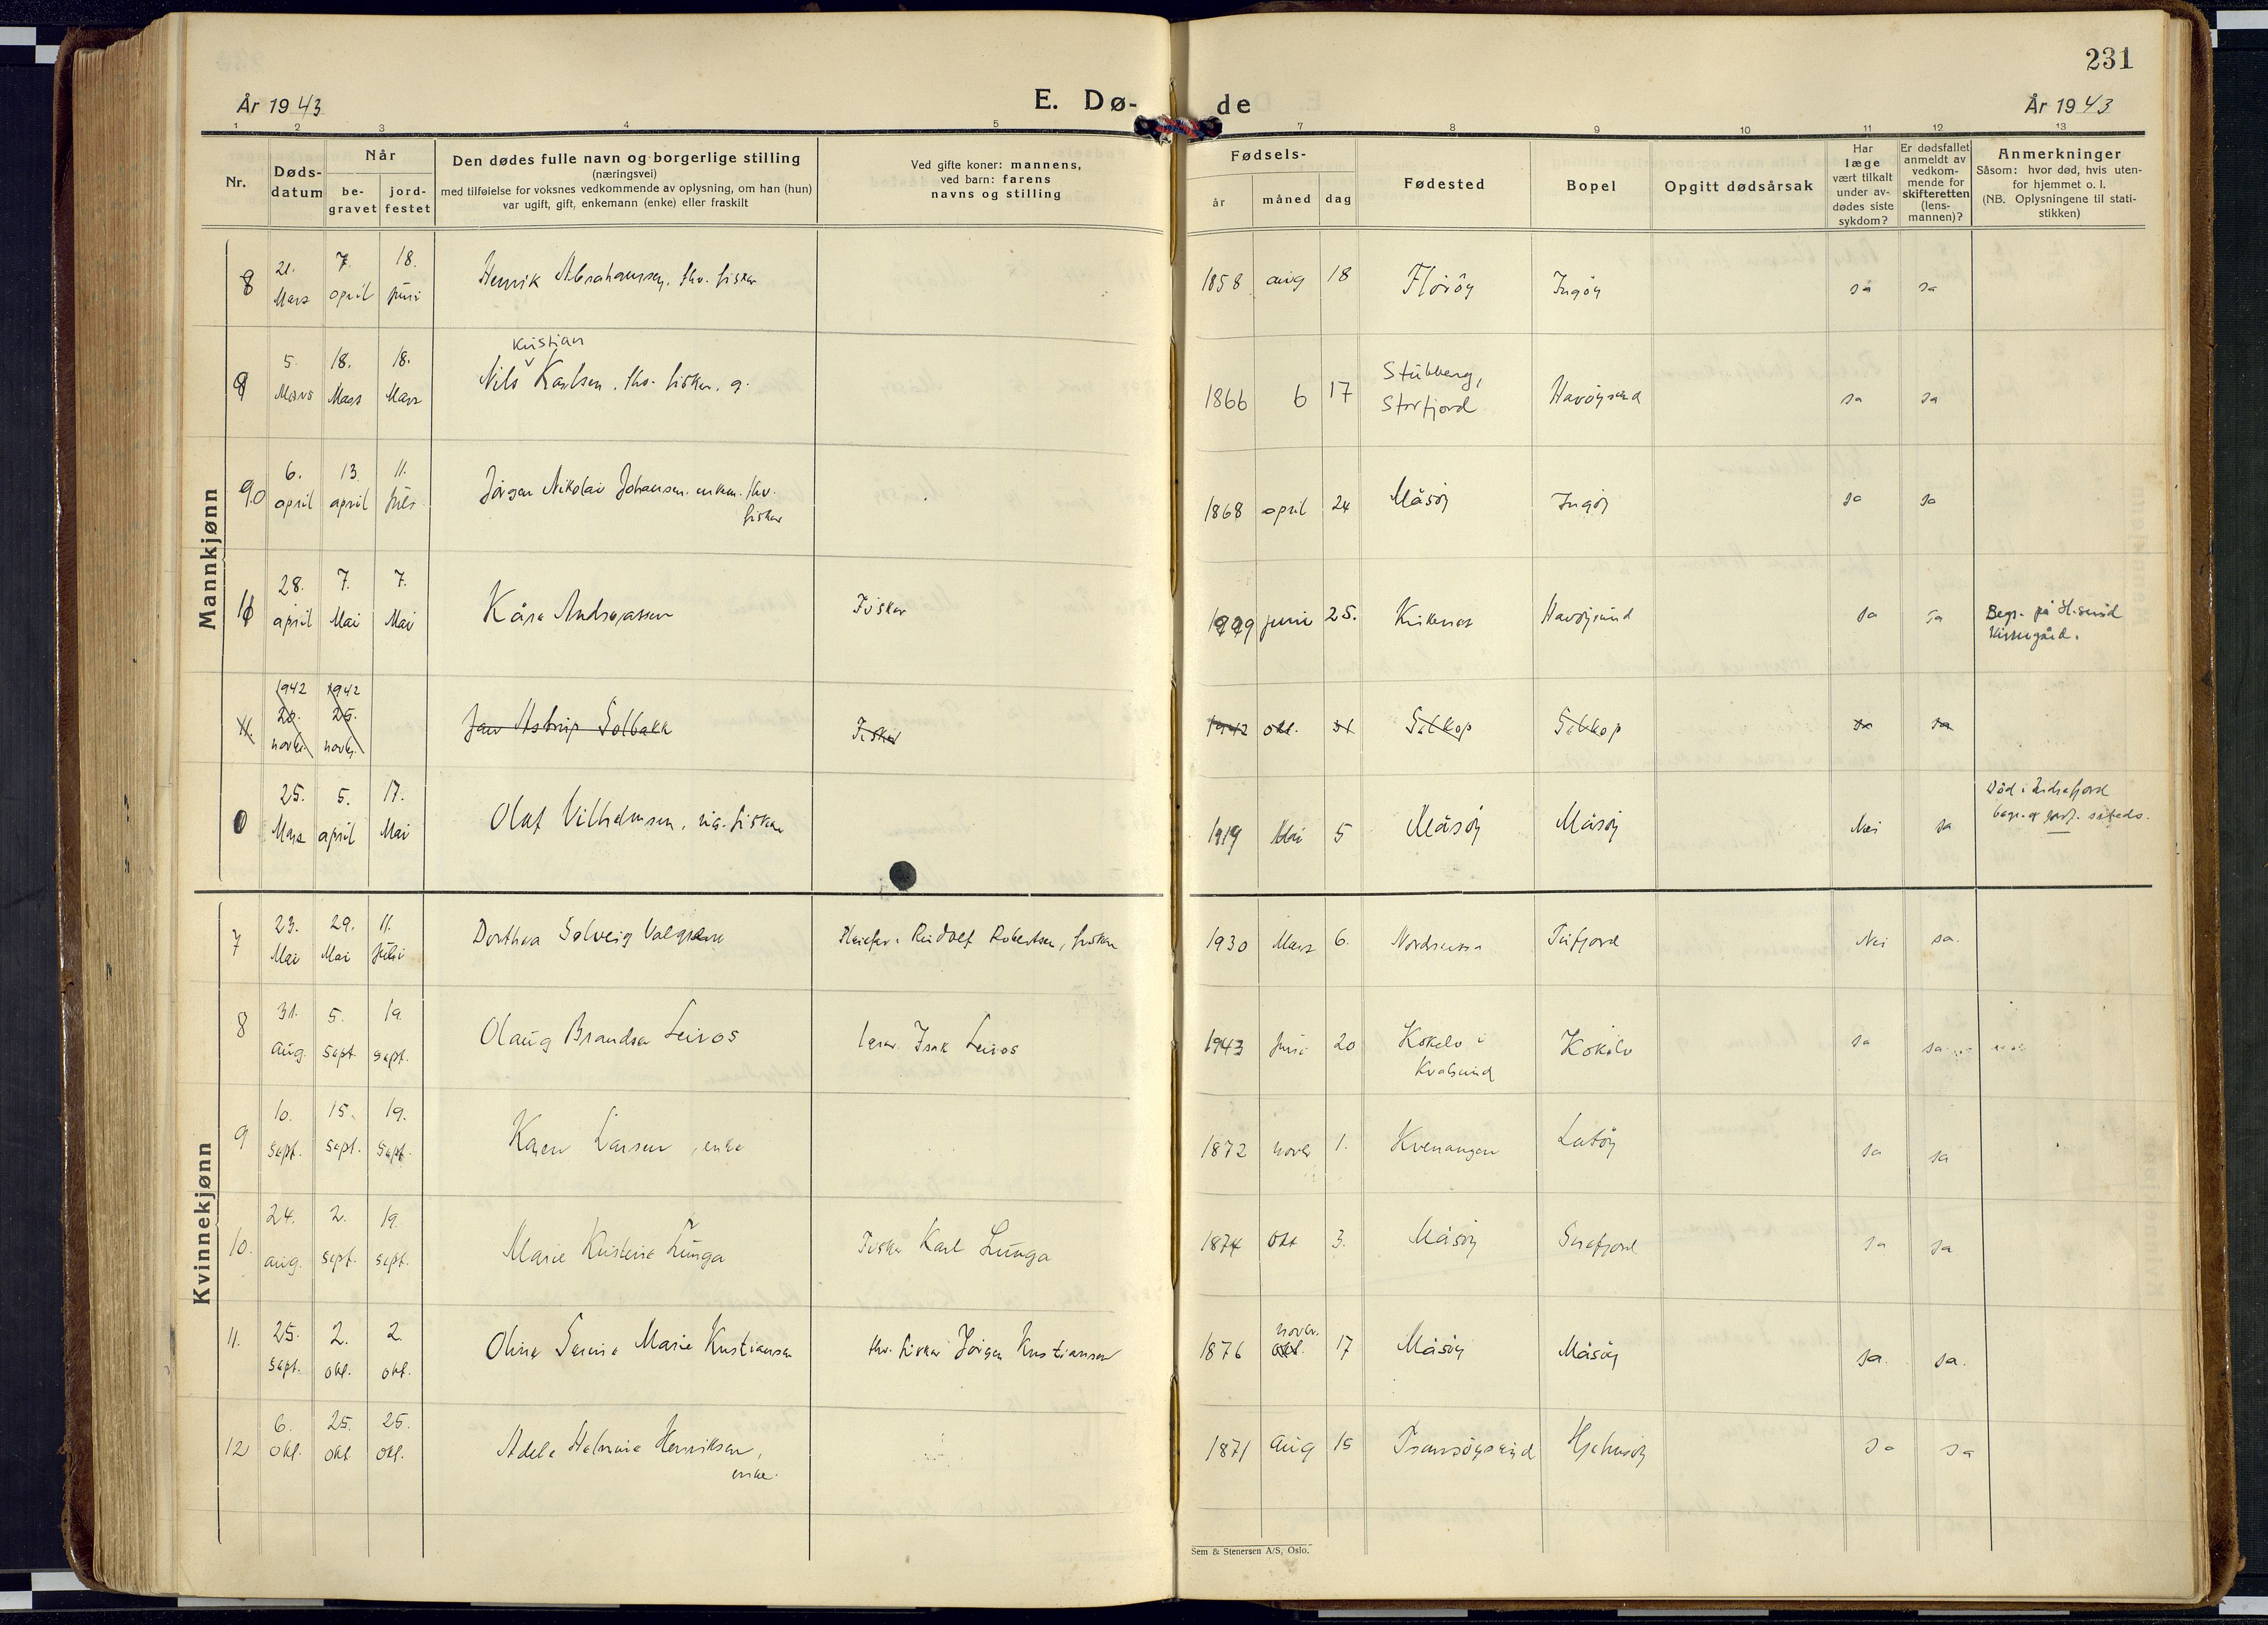 231
År 1943
E. Dø-
de
År 1943
1 2 3 4 5 7 8 9 10 11 12 13
Nr.
Døds-
datum
Når
be-
gravet
jord-
festet
Den dødes fulle navn og borgerlige stilling
(næringsvei)
med tilføielse for voksnes vedkommende av oplysning, om han (hun)
var ugift, gift, enkemann (enke) eller fraskilt
Ved gifte koner: mannens,
ved barn: farens
navns og stilling
Fødsels-
år
måned
dag
Fødested
Bopel
Opgitt dødsårsak
Har
læge
vært tilkalt
under av-
dødes siste
sykdom?
Er dødsfallet
anmeldt av
vedkom-
mende for
skifteretten
(lens-
mannen)?
Anmerkninger
Såsom: hvor død, hvis uten-
for hjemmet o. l.
(NB. Oplysningene til stati-
stikken)
Mannkjønn
8 21. Mars 7. april 18. juni Henrik Abrahamsen, fhv. fisker 1858 aug 18 Florøy Ingøy ja ja
Kristian
9 5. Mars 18. Mars 18. Mars Nils Karlsen, fhv. fisker, g. 1866 6 17 Stubberg, Storfjord Havøysund ja ja
10 6. april 13. april 11. juli Jörgen Nikolai Johansen. enkem. fhv. fisker 1868 april 24 Måsöy Ingöy ja ja
28. april 7. Mai 7. Mai Kåre Andreassen Fisker juni 25. Kirkenes Havöysund ja ja Begr. på H.sund Kirkegård.
11. 1942 20. novbr. 1942 25. novbr. Jan Astrup Solbakk Fisker 1942 okt. ja ja
25. Mars 5. april 17. Mai Olaf Vilhelmsen, ug. fisker 1919 Mai 5 Måsöy Måsöy Nei ja Død i
begr. og jordf. säteds.
Kvinnekjønn
7 23. Mai 29. Mai 11. Juli Dorthea Solveig Pleiefar: Rudolf Robertsen, fisker 1930 Mars 6. Tufjord Nei ja.
8 31. aug. 5. sept 19. sept. Olaug Brandsa Leiros Isak Leiros 1943 juni 20 Kokelv i Kvalsund Kokelv ja ja
9 10. sept. 15. sept. 19. sept. Karen Larsen, enke 1872 novbr 1. Kvenangen Latöy ja ja
10. 24. aug. 2. sept. 19. sept. Marie Kristine Lunga Fisker Karl Lunga 1874 Okt 3. Måsöy ja ja
11. 25. sept. 2. okt. 2. okt. Oline Marie Kristiansen fhv. fisker Jörgen Kristiansen 1876 novbr. okt. 17 Måsöy Måsöy ja. ja.
12 6. okt. 25. okt. 25. okt. Adele Halmine Henriksen, enke. 1871 aug 15 Tromsöysund Hjelmsöy ja ja
Sem & Stenersen A/S, Oslo.